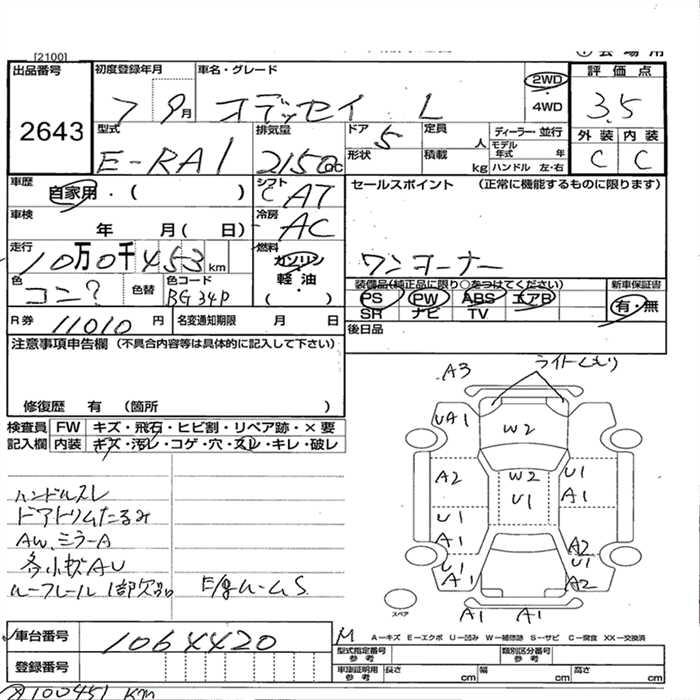 [2100]
出品番号 2643
初度登録年月 7 9月
車名・グレード オデッセイ L
2WD ・ 4WD
評価点 3.5
外装 C 内装 C
型式 E-RA1
排気量 2150cc
ドア 5
定員 人
形状
積載 kg
ディーラー・並行
モデル年式 年
ハンドル 左・右
車歴 自家用・( )
シフト C AT
車検 年 月( 日)
冷房 AC
セールスポイント (正常に機能するものに限ります)
ワンオーナー
走行 10万0千453km
燃料 ガソリン 軽油・( )
色 コン?
色替
色コード BG34P
装備品(純正品に限り○をつけてください)
PS PW ABS エアB
SR ナビ TV
新車保証書 有・無
R券 11010円
名変通知期限 月 日
後日品
注意事項申告欄 (不具合内容等は具体的に記入して下さい)
修復歴 有 (箇所 )
検査員記入欄
FW キズ・飛石・ヒビ割・リペア跡・×要
内装 キズ・汚レ・コゲ・穴・スレ・キレ・破レ
ハンドルスレ
ドアトリムたるみ
AW、ミラーA
各小キズAU
ルーフレール1部欠品
E/gルームS
A3
ライトくもり
UA1
W2
A2
W2
U1
U1
A1
U1
A1
A2
U1
A1
U1
A2
A1
A1
スペア
車台番号 1064420
登録番号
M
A－キズ E－エクボ U－凹み W－補修跡 S－サビ C－腐食 XX－交換済
型式指定番号 参考
類別区分番号 参考
車車証明用 参考 長さ cm 幅 cm 高さ cm
100451 km